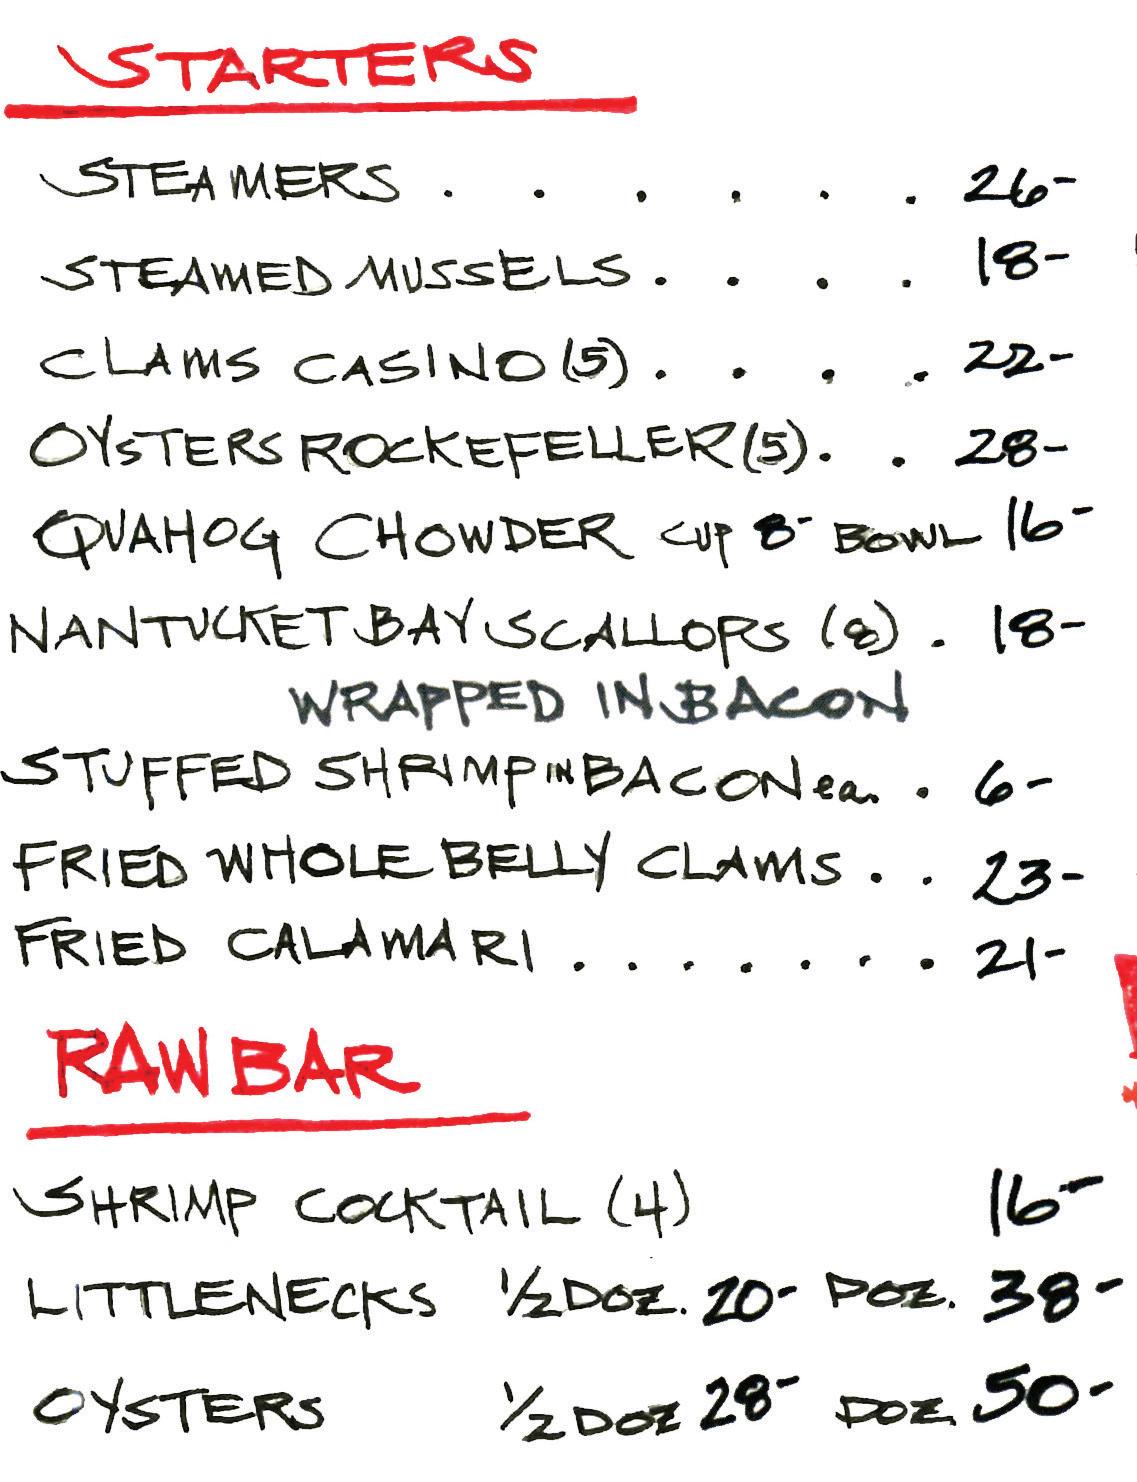 STARTERS
STEAMERS . . . . . . 26-
STEAMED MUSSELS . . . . 18-
CLAMS CASINO (5) . . . . 22-
OYSTERS ROCKEFELLER (5) . . 28-
QUAHOG CHOWDER CUP 8- BOWL 16-
NANTUCKET BAY SCALLOPS (8) . 18-
WRAPPED IN BACON
STUFFED SHRIMP IN BACON ea. . 6-
FRIED WHOLE BELLY CLAMS . . 23-
FRIED CALAMARI . . . . . . . 21-
RAW BAR
SHRIMP COCKTAIL (4) 16-
LITTLENECKS 1/2 DOZ. 20- DOZ. 38-
OYSTERS 1/2 DOZ 28- DOZ. 50-